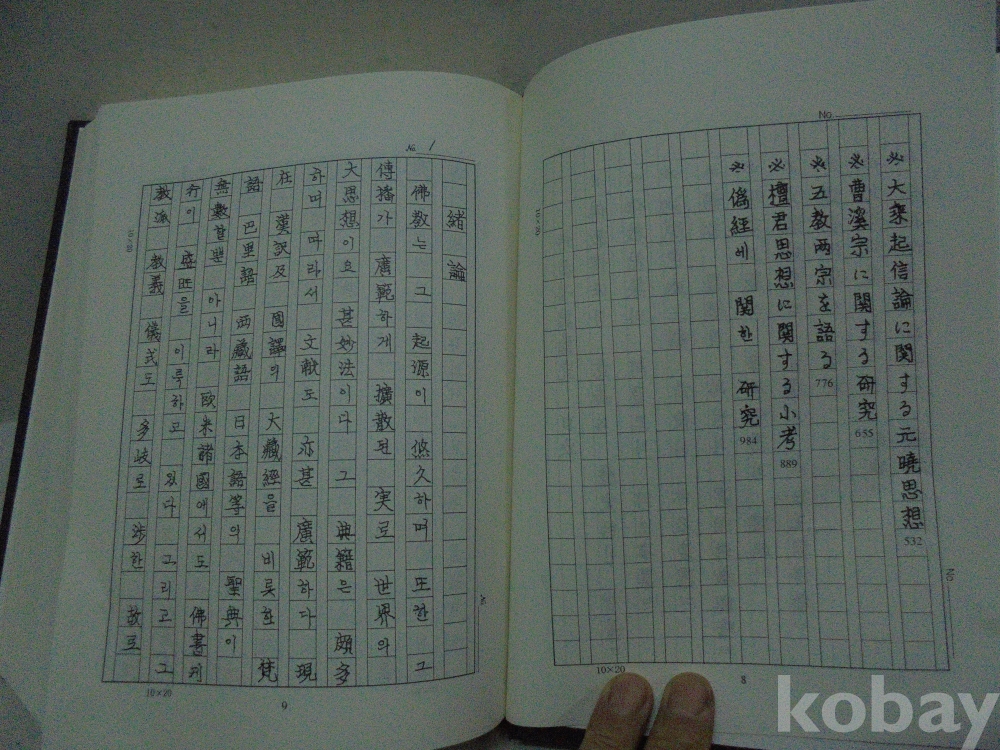 No
※ 大乘起信論に関する元曉思想 532
※ 曹溪宗に関する研究 655
※ 五教両宗を語る 776
※ 檀君思想に関する小考 889
※ 僞經에 関한 研究 984
10×20
8
№ 1
緖論
佛教는 그 起源이 悠久하며 또한 그
傳播가 廣範하게 擴散된 実로 世界의
大思想이요 甚妙法이다 그 典籍은 頗多
하며 따라서 文献도 亦甚 廣範하다 現
在 漢訳及 國譯의 大藏經을 비롯한 梵
語 巴里語 西藏語 日本語等의 聖典이
無數할뿐 아니라 欧米諸國에서도 佛書刊
行이 盛旺을 이룩하고 있다 그리고 그
教派 教義 儀式도 多岐로 涉한 故로
10×20
9
kobay